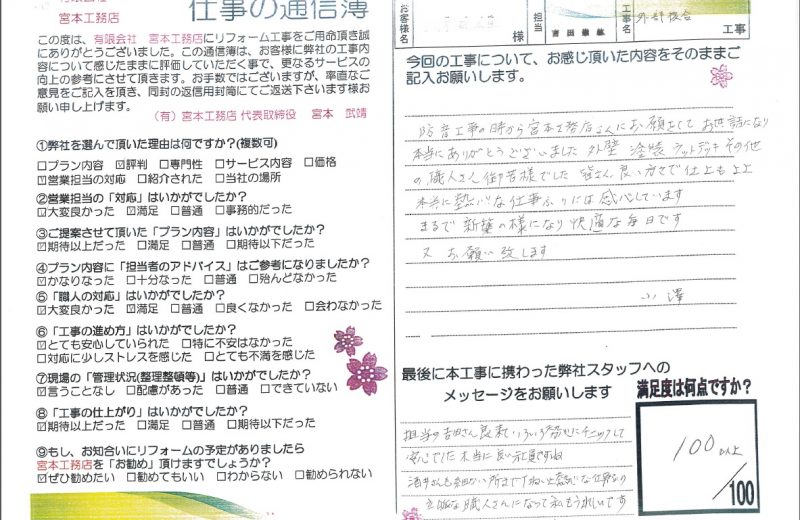 宮本工務店
仕事の通信簿
この度は、有限会社 宮本工務店にリフォーム工事をご用命頂き誠
にありがとうございました。この通信簿は、お客様に弊社の工事内
容について感じたままに評価していただく事で、更なるサービスの
向上の参考にさせて頂きます。お手数ではございますが、率直なご
意見をご記入を頂き、同封の返信用封筒にてご返送下さいます様お
願い申し上げます。
(有)宮本工務店 代表取締役 宮本 武靖
①弊社を選んで頂いた理由は何ですか?(複数可)
□プラン内容 ☑評判 □専門性 □サービス内容 □価格
☑営業担当の対応 □紹介された □当社の場所
②営業担当の「対応」はいかがでしたか?
☑大変良かった ☑満足 □普通 □事務的だった
③ご提案させて頂いた「プラン内容」はいかがでしたか?
☑期待以上だった □満足 □普通 □期待以下だった
④プラン内容に「担当者のアドバイス」はご参考になりましたか?
☑かなりなった □十分なった □普通 □殆んどなかった
⑤「職人の対応」はいかがでしたか?
☑大変良かった ☑満足 □普通 □良くなかった □会わなかった
⑥「工事の進め方」はいかがでしたか?
☑とても安心していられた □特に不安はなかった
□対応に少しストレスを感じた □とても不満を感じた
⑦現場の「管理状況(整理整頓等)」はいかがでしたか?
☑言うことなし □配慮があった □普通 □できていない
⑧「工事の仕上がり」はいかがでしたか?
☑期待以上だった □満足 □普通 □期待以下だった
⑨もし、お知合いにリフォームの予定がありましたら
宮本工務店を「お勧め」頂けますでしょうか?
☑ぜひ勧めたい □勧めてもいい □わからない □勧められない
お客様名
担当
工事名
工事
今回の工事について、お感じ頂いた内容をそのままご
記入お願いします。
防音工事の時から宮本工務店さんにお願いをして お世話になり
本当にありがとうございました 外壁 塗装 ウッドデッキ その他
の職人さん御苦様でした 皆さん良い方々で仕上もよく
本当に熱心な仕事ぶりには感心しています
まるで新築の様になり快適な毎日です
又お願い致します
小澤
最後に本工事に携わった弊社スタッフへの
メッセージをお願いします
満足度は何点ですか?
担当の吉田さん
安心でした 本当に良い社員ですね
立派な職人さんになって私もうれしいです
100以上
/100